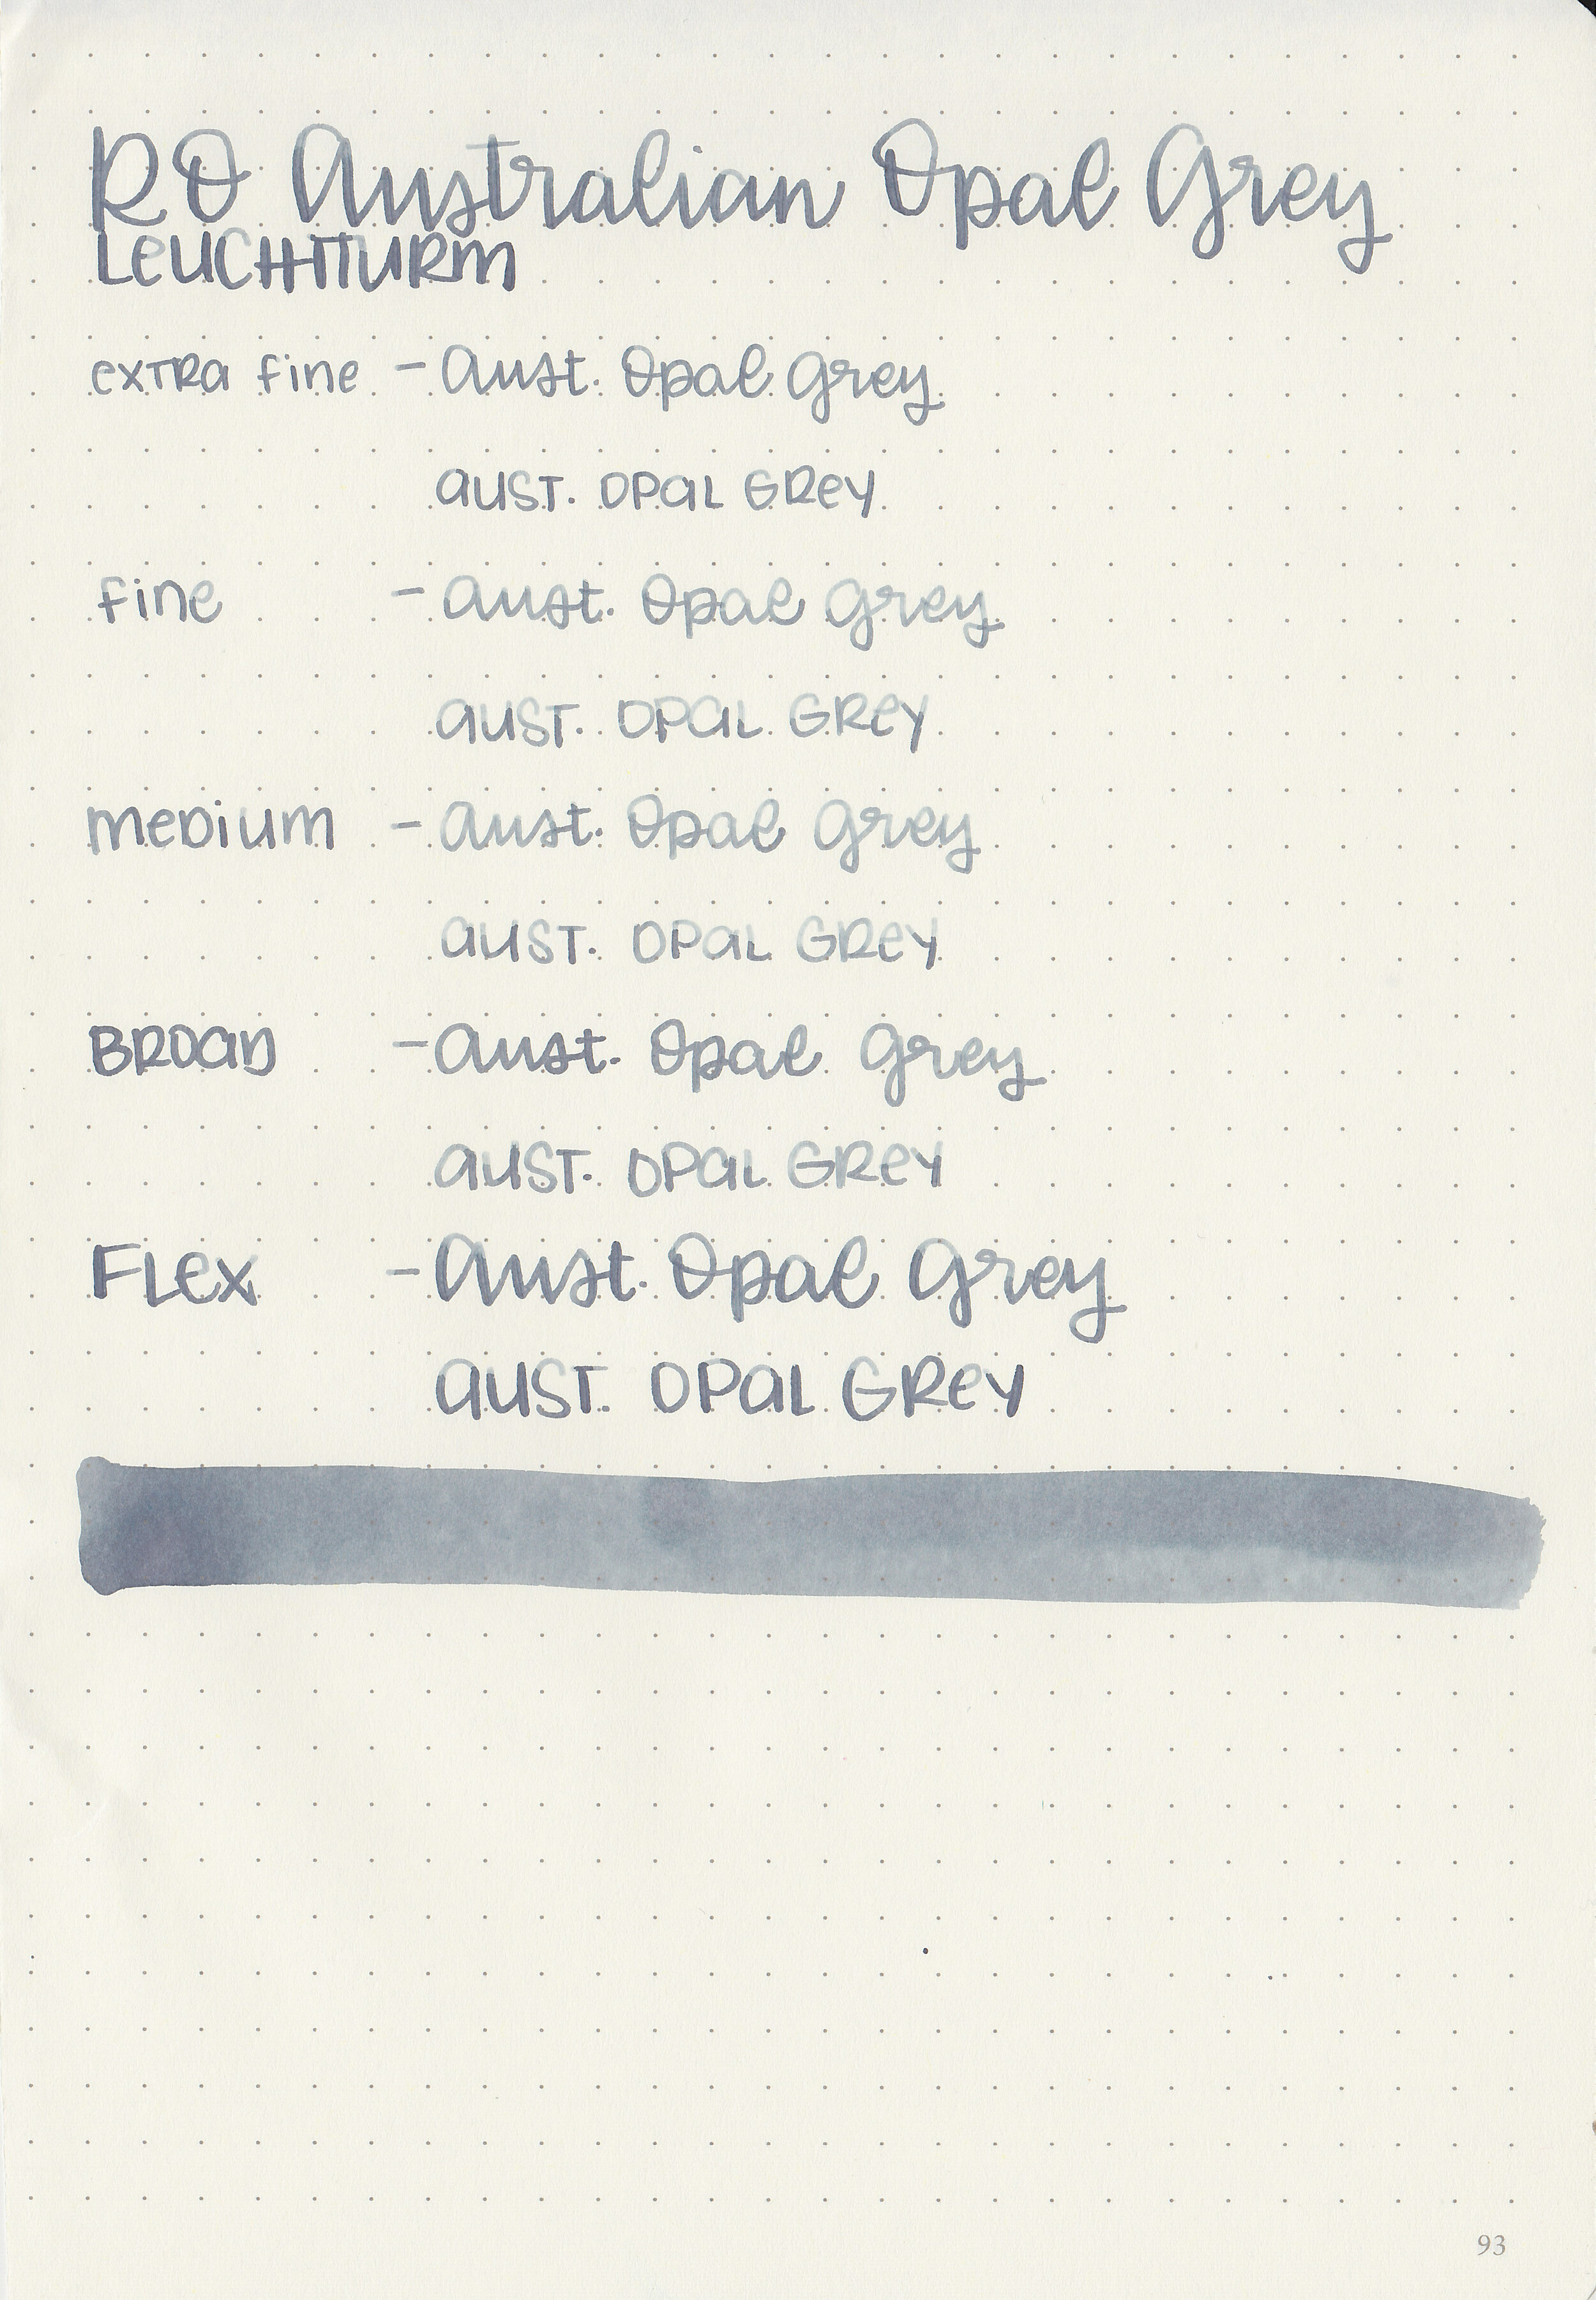 RO Australian Opal Grey
LEUCHTTURM
extra fine - Aust. Opal Grey
AUST. OPAL GREY
fine - Aust. Opal Grey
AUST. OPAL GREY
medium - Aust. Opal Grey
AUST. OPAL GREY
BROAD - Aust. Opal Grey
AUST. OPAL GREY
FLEX - Aust. Opal Grey
AUST. OPAL GREY
93